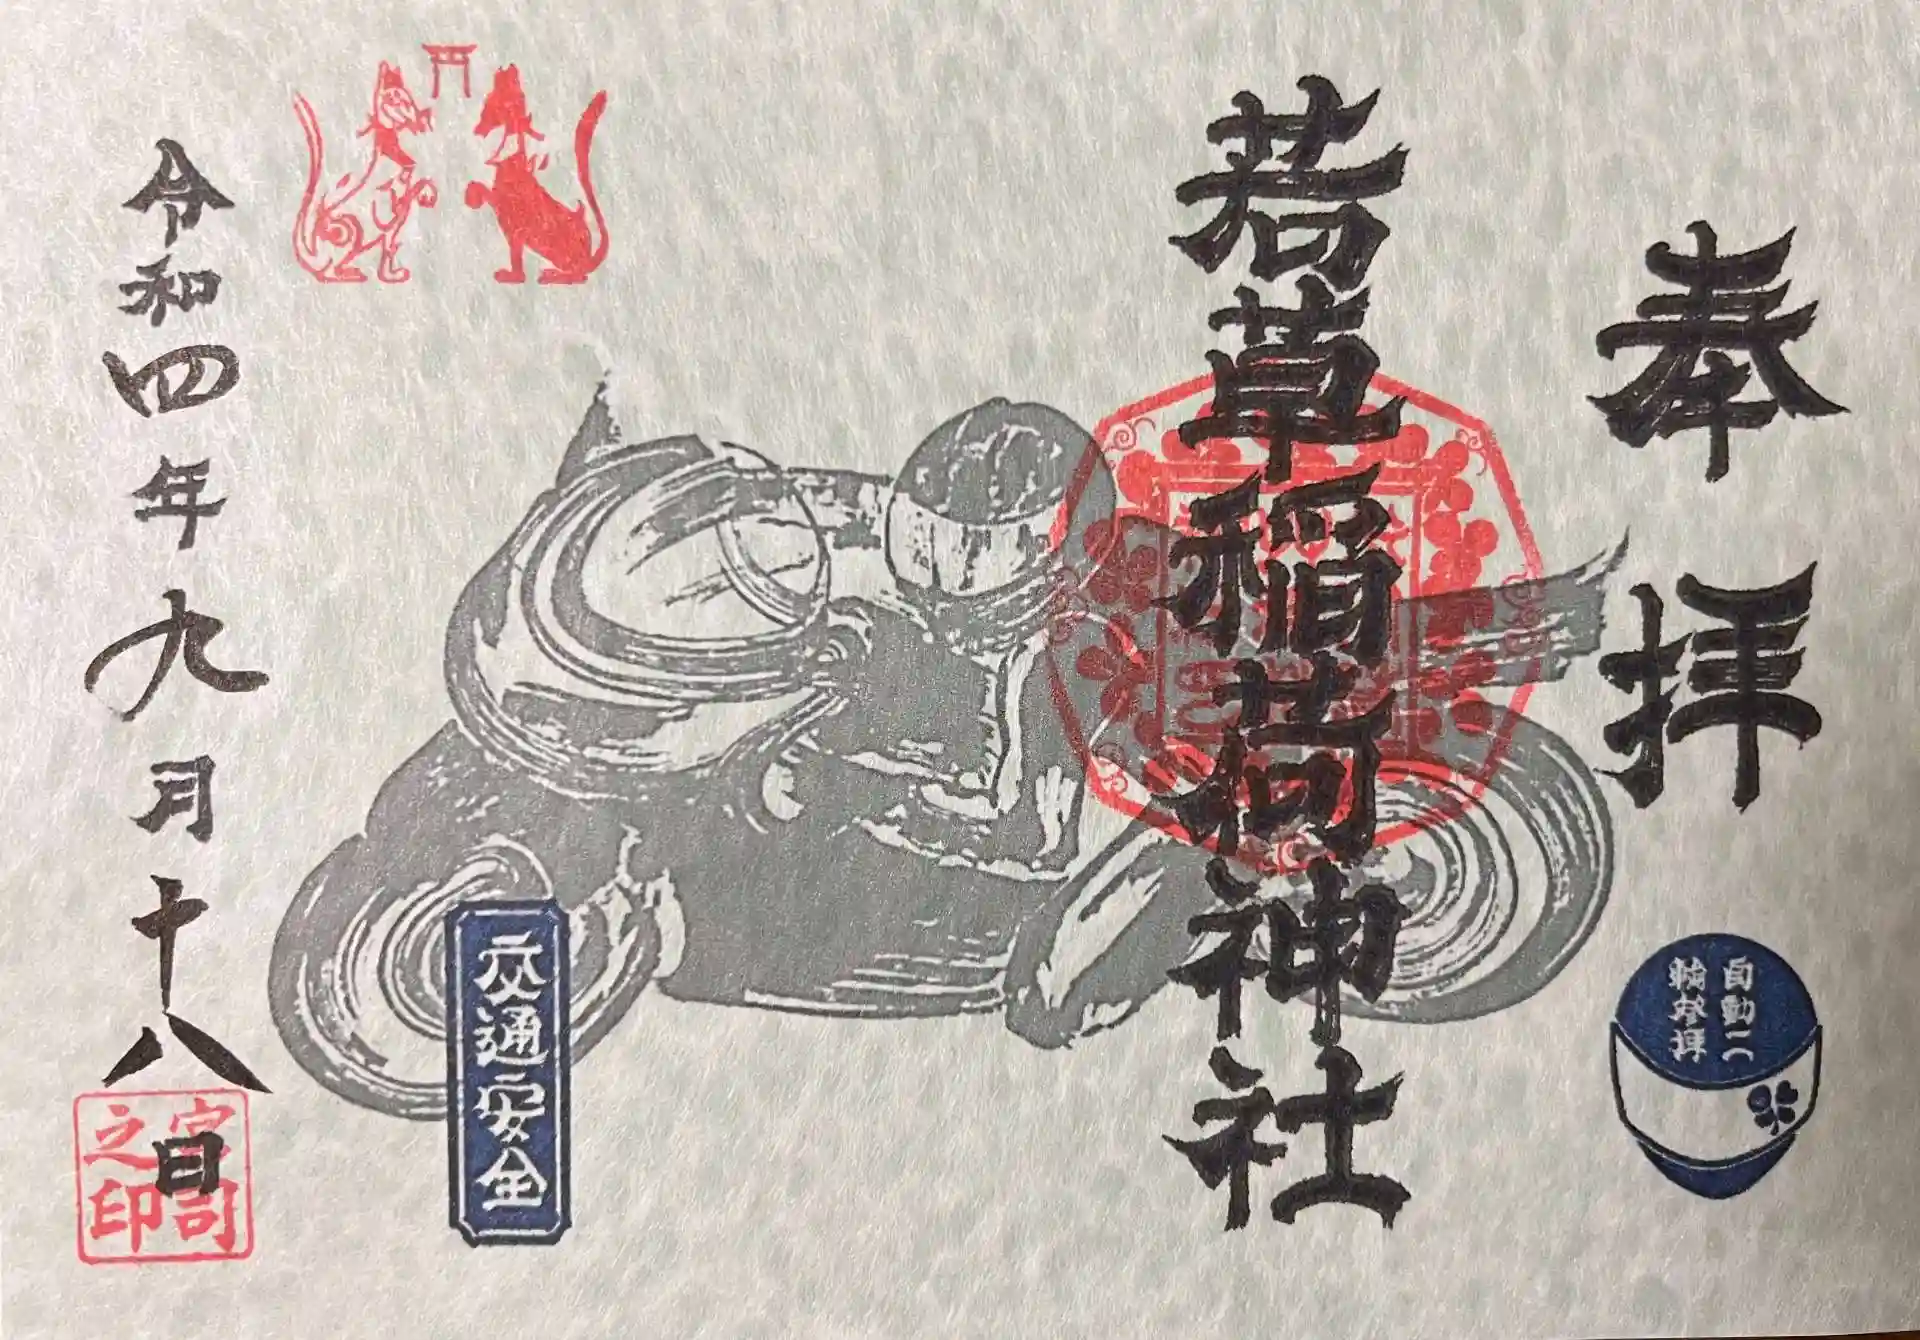 奉拝
若草稲荷神社
自動二
輪参拝
交通安全
令和四年九月十八日
宮司
之印